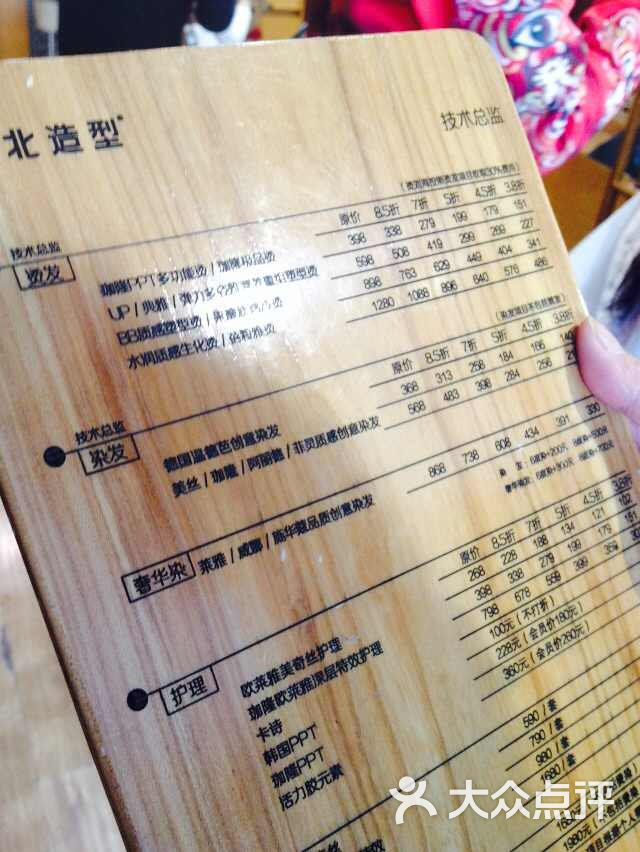 北造型
技术总监
技术总监
烫发
原价 8.5折 7折 5折 4.5折 3.8折
398 338 279 199 179 151
598 508 419 299 269 227
898 763 629 449 404 341
1280 1088 896 640 576 486
水润质感生化烫
技术总监
染发
原价 8.5折 7折 5折 4.5折 3.8折
德国温德芭创意染发 368 313 258 184 166 140
美丝/珈隆/阿丽德/菲灵质感创意染发 568 483 398 284 256
奢华染
莱雅/威娜/施华蔻品质创意染发 868 738 608 434 391 330
护理
原价 8.5折 7折 5折 4.5折 3.8折
欧莱雅美奇丝护理 268 228 188 134 121 102
珈隆欧莱雅深层特效护理 398 338 279 199 179 151
卡诗 798 678 559 399 359
韩国PPT 100元(不打折)
珈隆PPT 228元(会员价180元)
活力胶元素 360元(会员价260元)
590/套
790/套
980/套
1680/套
大众点评